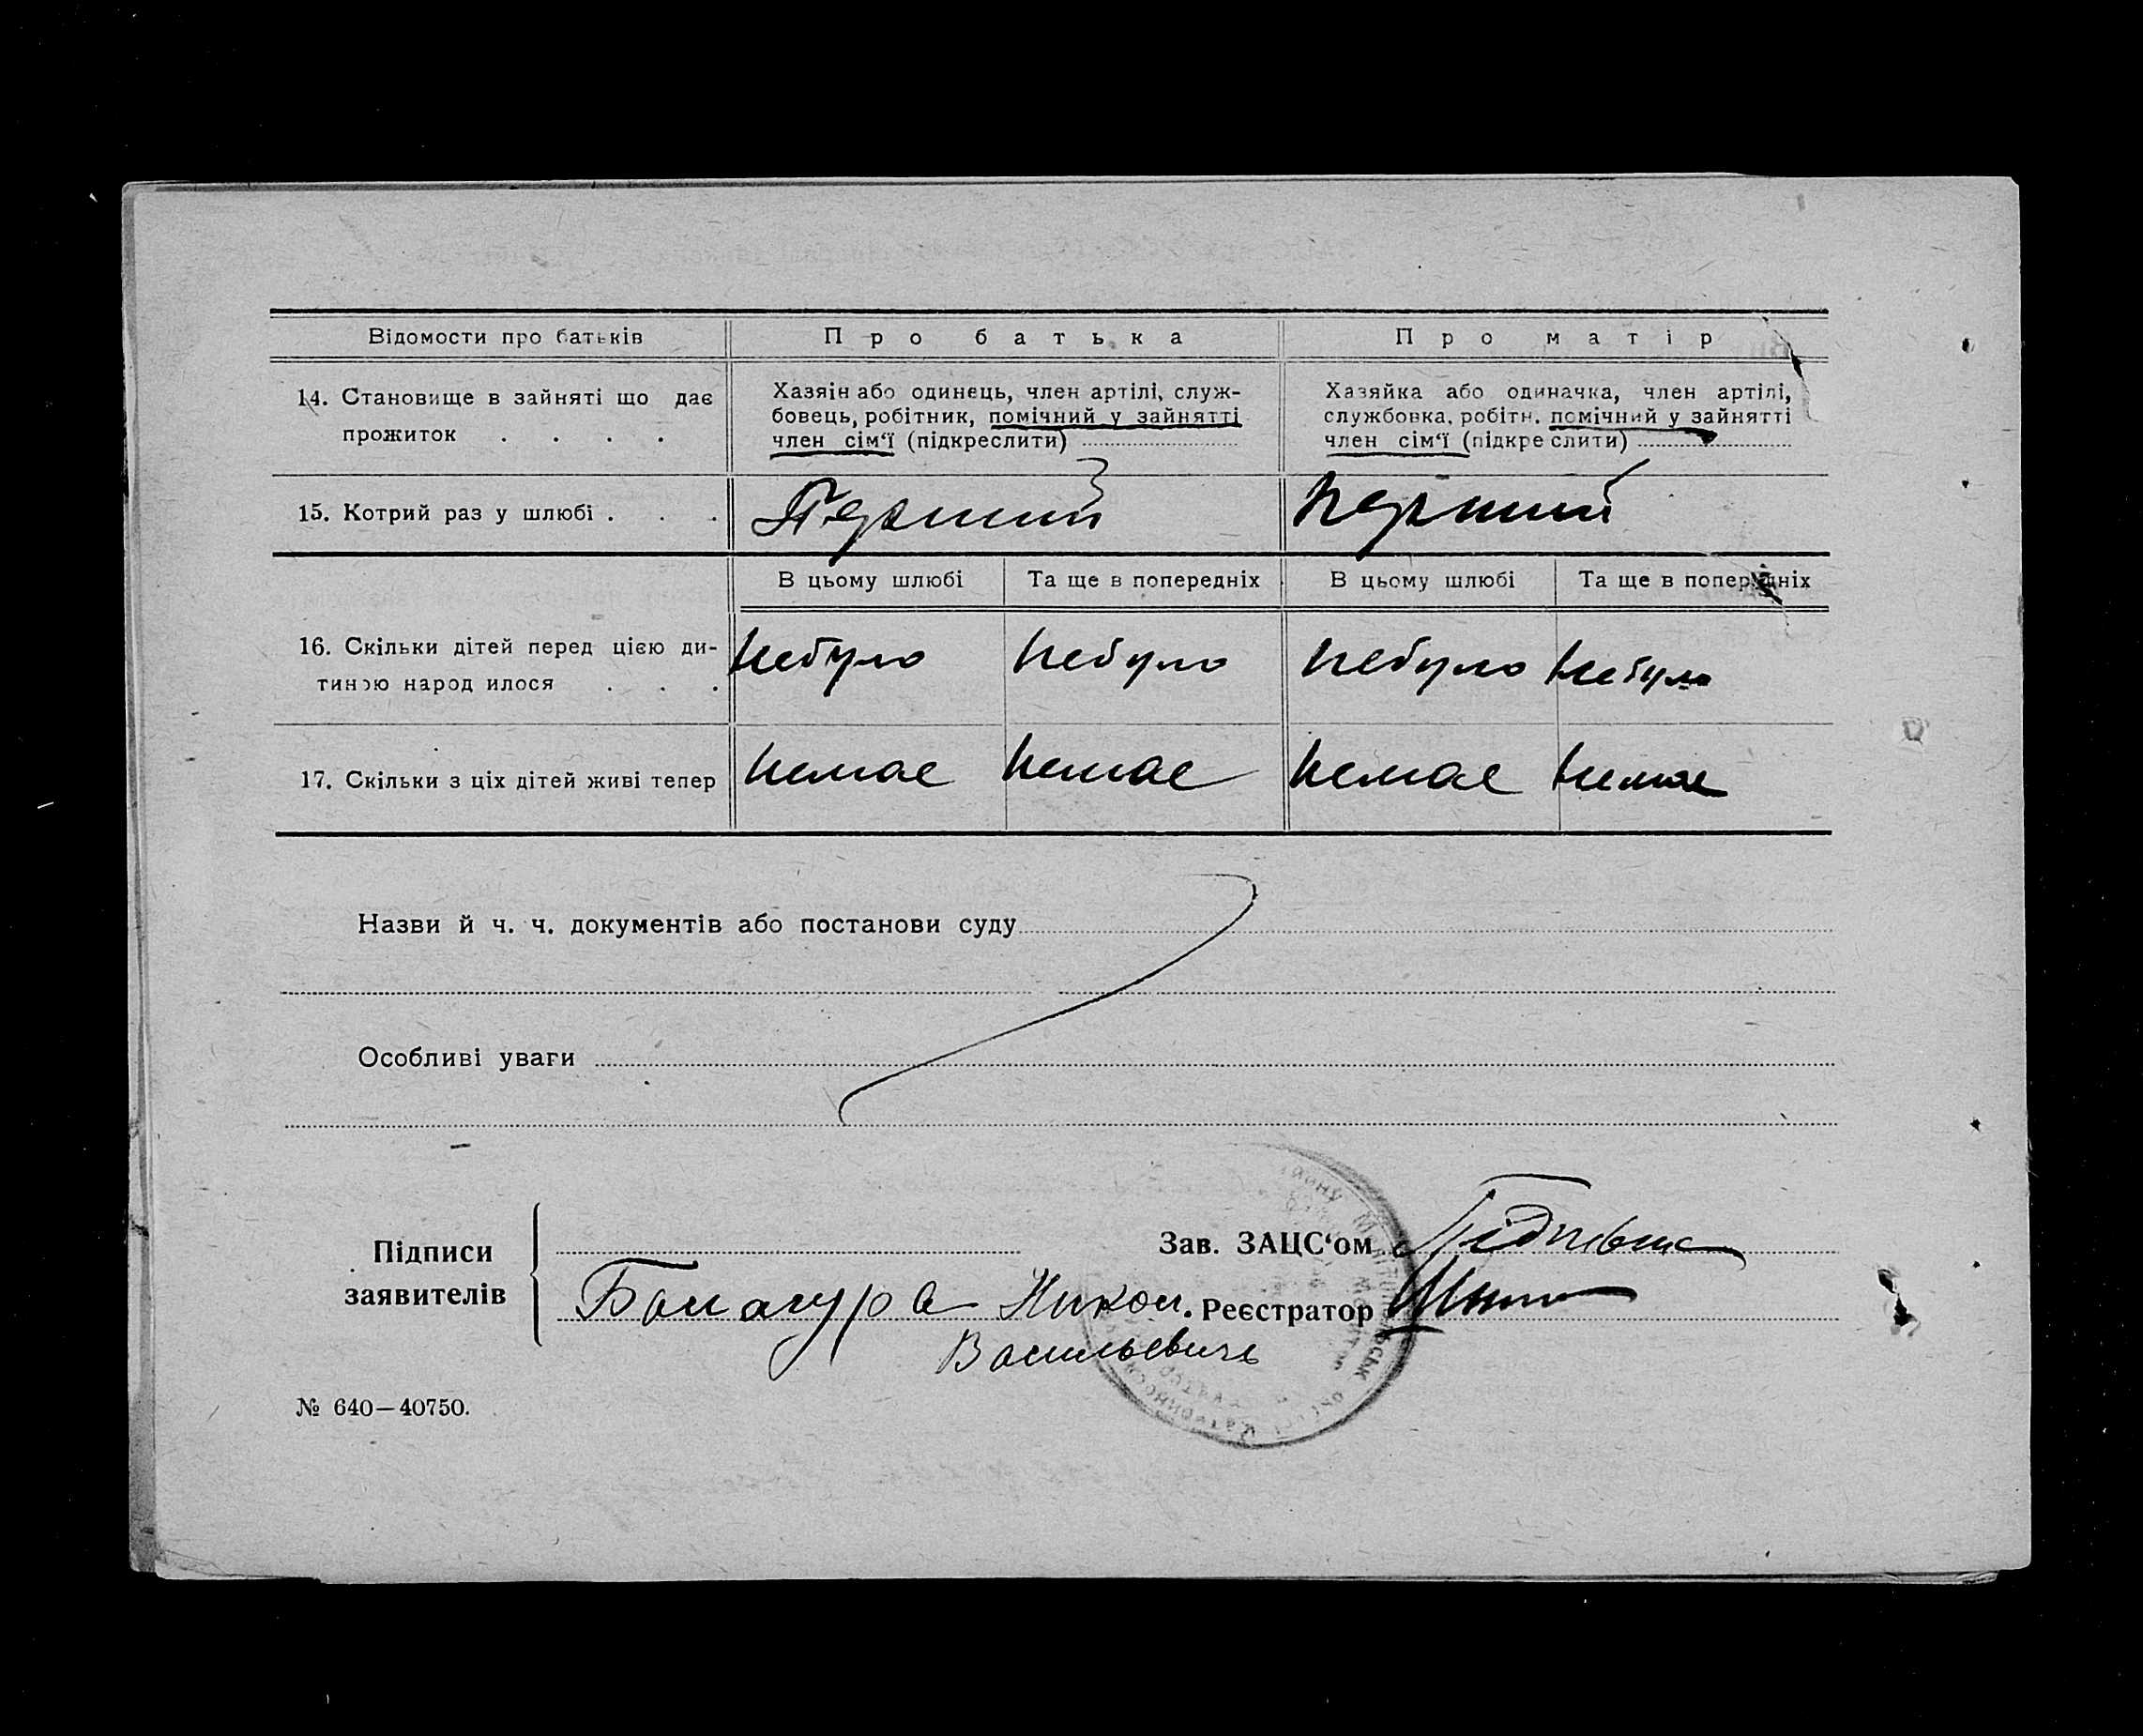 Відомости про батьків
Про батька
Про матір
14. Становище в зайняті що дає
прожиток . . . .
Хазяін або одинець, член артілі, служ-
бовець, робітник, помічний у зайнятті
член сім‘ї (підкреслити)
Хазяйка або одиначка, член артілі,
службовка, робітн. помічний у зайнятті
член сім‘ї (підкре слити)
15. Котрий раз у шлюбі . . .
Перший
Перший
В цьому шлюбі
Та ще в попередніх
В цьому шлюбі
Та ще в попередніх
16. Скільки дітей перед цією ди-
тиною народ илося . . .
небуло
небуло
небуло
небуло
17. Скільки з ціх дітей живі тепер
немає
немає
немає
немає
Назви й ч. ч. документів або постанови суду
Особливі уваги
Підписи
заявителів
Зав. ЗАЦС‘ом
Реєстратор
Никон.
Васильевичь
№ 640—40750.